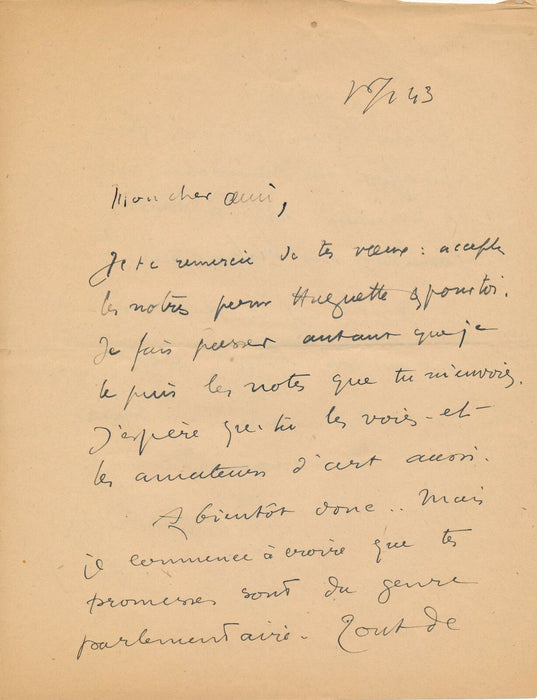 1 43
Mon cher ami,
Je te remercie de tes vœux : accepte
les nôtres pour Huguette & pour toi.
Je fais passer autant que je
le puis les notes que tu m'envoies.
J'espère que tu les vois - et
les amateurs d'art aussi.
A bientôt donc .. Mais
je commence à croire que tes
promesses sont du genre
parlementaire. Tout de